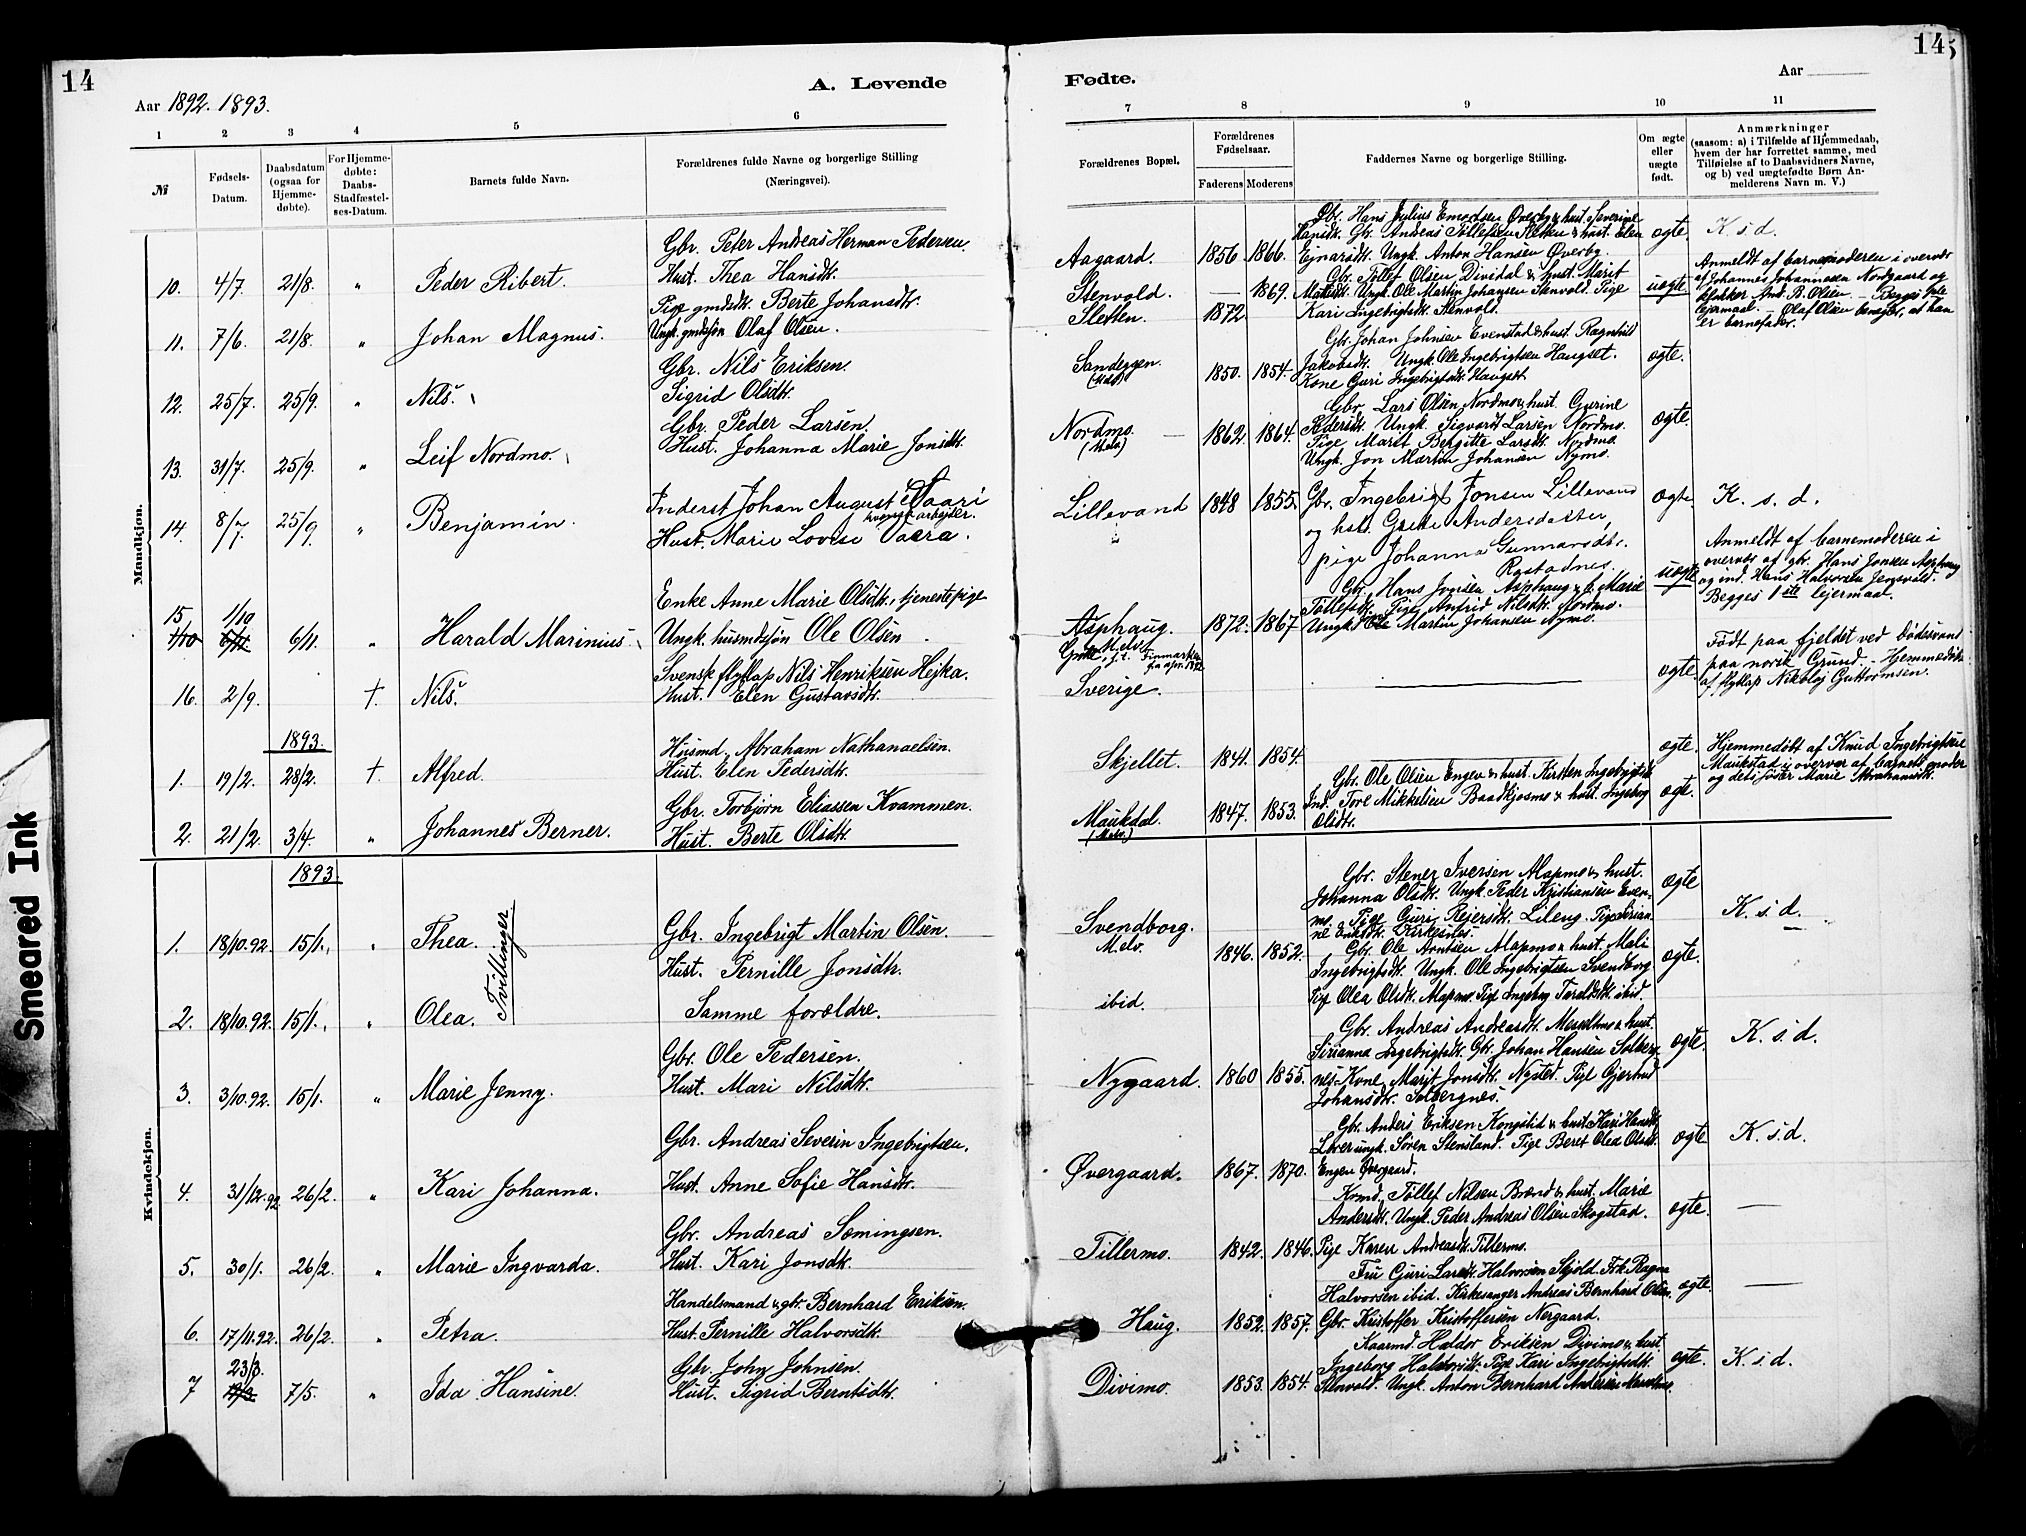 14
A. Levende
Aar 1892. 1893.
1 2 3 4 5 6
№
Fødsels-
Datum.
Daabsdatum
(ogsaa for
Hjemme-
døbte).
For Hjemme-
døbte:
Daabs-
Stadfæstel-
ses-Datum.
Barnets fulde Navn.
Forældrenes fulde Navne og borgerlige Stilling
(Næringsvei).
Mandkjøn.
Gbr. Peter Andreas Herman Pedersen
10. 4/7. 21/8. " Peder Ribert. Hust. Thea Hansdt.
Pige gmdsdt. Berte Johansdt.
11. 7/6. 21/8. " Johan Magnus. Ungk. gmdsøn Olaf Olsen.
Gbr. Nils Eriksen.
12. 25/7. 25/9. " Nils. Sigrid Olsdt.
Gbr. Peder Larsen.
13. 31/7. 25/9. " Leif Nordmo. Hust. Johanna Marie Jonsdt.
Inderst Johan August
14. 8/7. 25/9. " Benjamin. Hust. Marie Lovise
Enke Anne Marie Olsdt., tjenestepige
15 1/10
6/11. " Harald Marinius. Ungk. husmdssøn Ole Olsen
Svensk flytlap Nils Henriksen Hejka.
16. 2/9. †. Nils. Hust. Elen Gustavsdt.
1893.
Husmd. Abraham Nathanaelsen.
1. 19/2. 28/2. †. Alfred. Hust. Elen Pedersdt.
Gbr. Torbjørn Eliassen Kvammen.
2. 21/2. 3/4. " Johannes Berner. Hust. Berte Olsdt.
Kvindekjøn.
1893.
1. 18/10.92. 15/1. " Thea. Gbr. Ingebrigt Martin Olsen.
Tvillinger
Hust. Pernille Jonsdt.
2. 18/10.92. 15/1. " Olea. Samme forældre.
Gbr. Ole Pedersen.
3. 3/10.92. 15/1. " Marie Jenny. Hust. Mari Nilsdt.
Gbr. Andreas Severin Ingebrigtsen.
4. 31/12.92 26/2. " Kari Johanna. Hust. Anne Sofie Hansdt.
Gbr. Andreas Somingsen.
5. 30/1. 26/2. " Marie Ingvarda. Hust. Kari Jonsdt.
Handelsmand & gbr. Bernhard Eriksen.
6. 17/11.92. 26/2. " Petra. Hust. Pernille Halvorsdt.
23/3. Gbr. John Johnsen.
7 7/5. " Ida Hansine. Hust. Sigrid Berntsdt.
Fødte.
Aar
14
7 8 9 10 11
Forældrenes Bopæl.
Forældrenes
Fødselsaar.
Faderens Moderens
Faddernes Navne og borgerlige Stilling.
Om ægte
eller
uægte
født.
Anmærkninger
(saasom: a) i Tilfælde af Hjemmedaab,
hvem der har forrettet samme, med
Tilføielse af to Daabsvidners Navne,
og b) ved uægtefødte Børn An-
melderens Navn m. V.)
Gbr. Hans Julius Øverby & hust. Severine
Hansdt. Gbr. Andreas Tollefsen & hust. Elen ægte. K. s. d.
Aagaard. 1856 1866. Ejnarsdt. Ungk. Anton Hansen Øverby.
Gbr. Tollef Olsen Dividal & hust. Marit
Stenvold. — 1869. Ungk. Ole Martin Johansen Stenvold. Pige uægte
Sletten. 1872 Kari Ingebrigtsdt. Stenvold.
Anmeldt af barnemoderen i overvær
af Johannes Johannesen Nordgaard og
And. B. Olsen — Begges 1ste
lejermaal. Olaf Olsen benægter, at han
er barnefader.
Gbr. Johan Johnsen Evenstad & hust. Ragnhild
Sandeggen. 1850. 1854. Jakobsdt. Ungk. Ole Ingebrigtsen Haugset. ægte.
Kone Guri Ingebrigtsdt. Haugset.
Gbr. Lars Olsen Nordmo & hust. Gurine
Nordmo. 1862. 1864. Pedersdt. Ungk. Sigvardt Larsen Nordmo. ægte.
(Melv) Pige Marit Bergitte Larsdt. Nordmo.
Ungk. Jon Martin Johansen Nymo.
Lillevand 1848 1855. Gbr. Ingebrigt Jonsen Lillevand ægte K. s. d.
og hst. Grete Andersdatter,
pige Johanna Gunnarsdtr.
Rostadnes.
Gbr. Hans Jonsen Asphaug & h. Marie uægte
Tollefsdt. Pige Anfrid Nilsdt. Nordmo.
Asphaug. 1872. 1867 Ungk. Ole Martin Johansen Nymo.
Anmeldt af barnemoderen i
overvær af gbr. Hans Jonsen Asphaug
og ind. Hans Halvorsen Jensvold.
Begges 1ste lejermaal.
Sverige. ægte.
Født paa fjeldet ved
paa norsk Grund. - Hjemmedøbt
af flytlap Nikolaj Guttormsen.
Skjellet. 1841. 1854. ægte.
Hjemmedøbt af Knud Ingebrigtsen
Maukstad i overvær af barnets moder
og dets søster Marie Abrahamsdt.
Gbr. Ole Olsen Engen & hust. Kirsten Ingebrigtsdt
Ind. Tore Mikkelsen & hust. Ingeborg ægte.
Maukdal. 1847. 1853. Olsdt.
(Melv.)
Gbr. Stener Iversen Alapmo & hust.
Johanna Olsdt. Ungk. Peder Kristiansen Even- ægte
mo. Pige Guri Rejersdt. Lileng. Pige Birian- K. s. d.
Svendborg. ne Eriksdt. Kirkesnes.
Melv. 1846. 1852. Gbr. Ole Arntsen Alapmo & hust. Mali ægte.
Ingebrigtsdt. Ungk. Ole Ingebrigtsen Svendborg
ibid. Pige Olea Olsdt. Alapmo. Pige Ingeborg Taraldsdt. ibid.
Gbr. Andreas Andreasdt. Messeltmo & hust.
Sirianna Ingebrigtsdt. Gbr. Johan Hansen Solberg- ægte. K. s. d.
Nygaard. 1860 1855. nes. Kone Marit Jonsdt. Nysted. Pige Gjertrud
Johansdt. Solbergnes.
Gbr. Anders Eriksen Kongslid & hust. Kari Hansdt
Lærer ungk. Søren Stensland. Pige Beret Olea Olsdt ægte K. s. d.
Øvergaard. 1867. 1870. Engen Øvergaard.
Krmd. Tollef Nilsen Brænd & hust. Marie
Andersdt. Ungk. Peder Andreas Olsen Skogstad. ægte. —
Tillermo. 1842. 1846. Pige Karen Andreasdt. Tillermo.
Fru Guri Larsdt. Halvorsen Skjold. Frk. Ragna
Halvorsen ibid. Kirkesanger Andreas Bernhard Olsen. ægte. —
Haug. 1852. 1857. Gbr. Kristoffer Kristoffersen Nergaard.
Kaarmd. Haldor Eriksen Divimo & hust.
Ingeborg Halvorsdt. Pige Kari Ingebrigtsdt. ægte. K. s. d.
Divimo. 1853. 1854. Stenvold. Ungk. Anton Bernhard Andersen
Smeared Ink